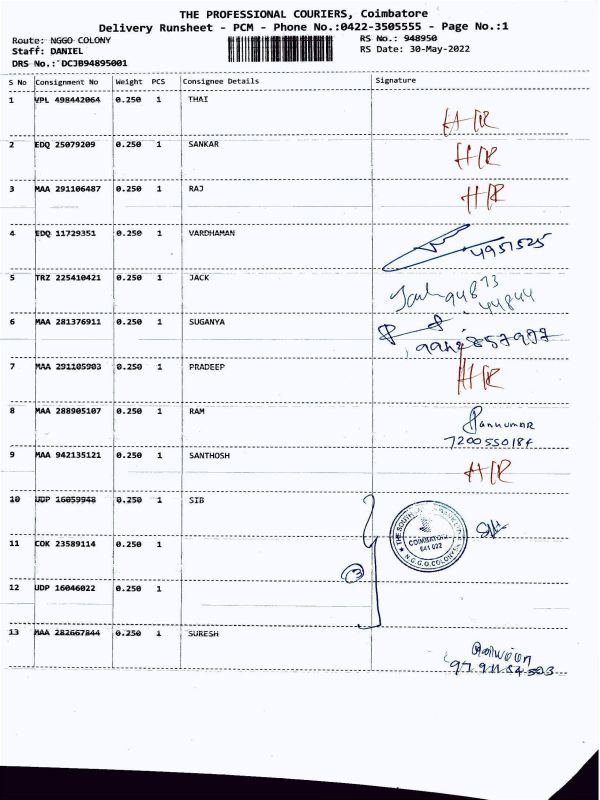 THE PROFESSIONAL COURIERS, Coimbatore
Delivery Runsheet - PCM - Phone No.:0422-3505555 - Page No.:1
Route: NGGO COLONY RS No.: 948950
Staff: DANIEL RS Date: 30-May-2022
DRS No.: DCJB94895001
S No Consignment No Weight PCS Consignee Details Signature
1 VPL 498442064 0.250 1 THAI
H/R
2 EDQ 25079209 0.250 1 SANKAR H/R
3 MAA 291106487 0.250 1 RAJ H/R
4 EDQ 11729351 0.250 1 VARDHAMAN
4951525
5 TRZ 225410421 0.250 1 JACK
Jack 94873
44844
6 MAA 281376911 0.250 1 SUGANYA
7 MAA 291105903 0.250 1 PRADEEP H/R
8 MAA 288905107 0.250 1 RAM
7200550184
9 MAA 942135121 0.250 1 SANTHOSH
H/R
10 UDP 16059948 0.250 1 SIB
THE SOUTH
COIMBATORE
641 022
N.G.G.O.COLONY
11 COK 23589114 0.250 1
3
12 UDP 16046022 0.250 1
13 MAA 282667844 0.250 1 SURESH